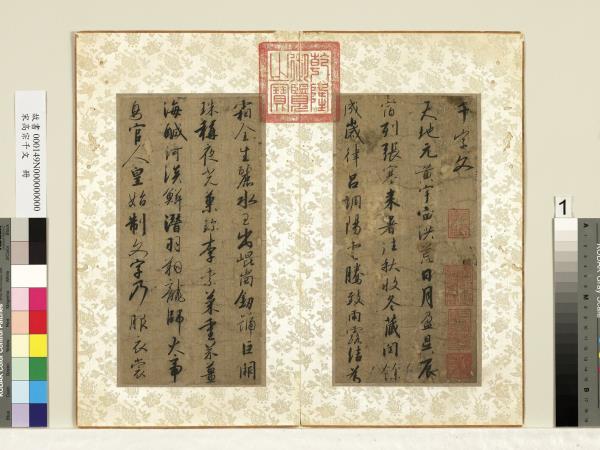 千字文
天地元黃宇宙洪荒日月盈昃辰
宿列張寒來暑往秋收冬藏閏餘
成歲律呂調陽雲騰致雨露結為
霜金生麗水玉出崐崗劍號巨闕
珠稱夜光菓珍李柰菜重芥薑
海鹹河淡鱗潛羽翔龍師火帝
鳥官人皇始制文字乃服衣裳
乾隆御覽之寶
故書 000149N000000000
宋高宗千文 冊
1